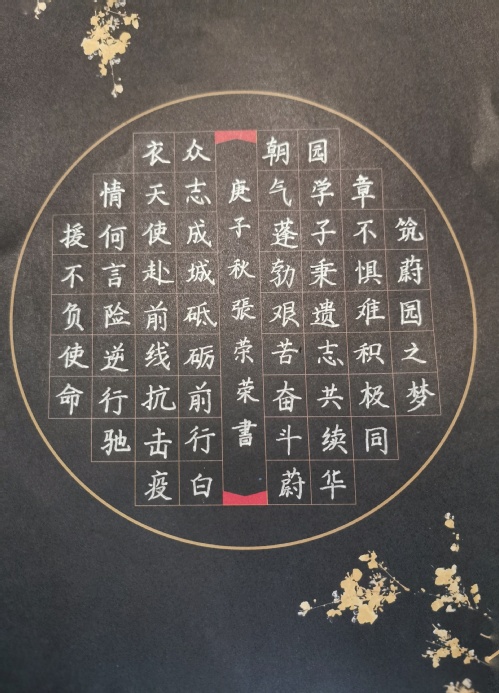 众志成城砥砺前行白
衣天使赴前线抗击疫
情何言险逆行驰
援不负使命
朝气蓬勃艰苦奋斗蔚
园学子秉遗志共续华
章不惧难积极同
筑蔚园之梦
庚子秋張荣荣書